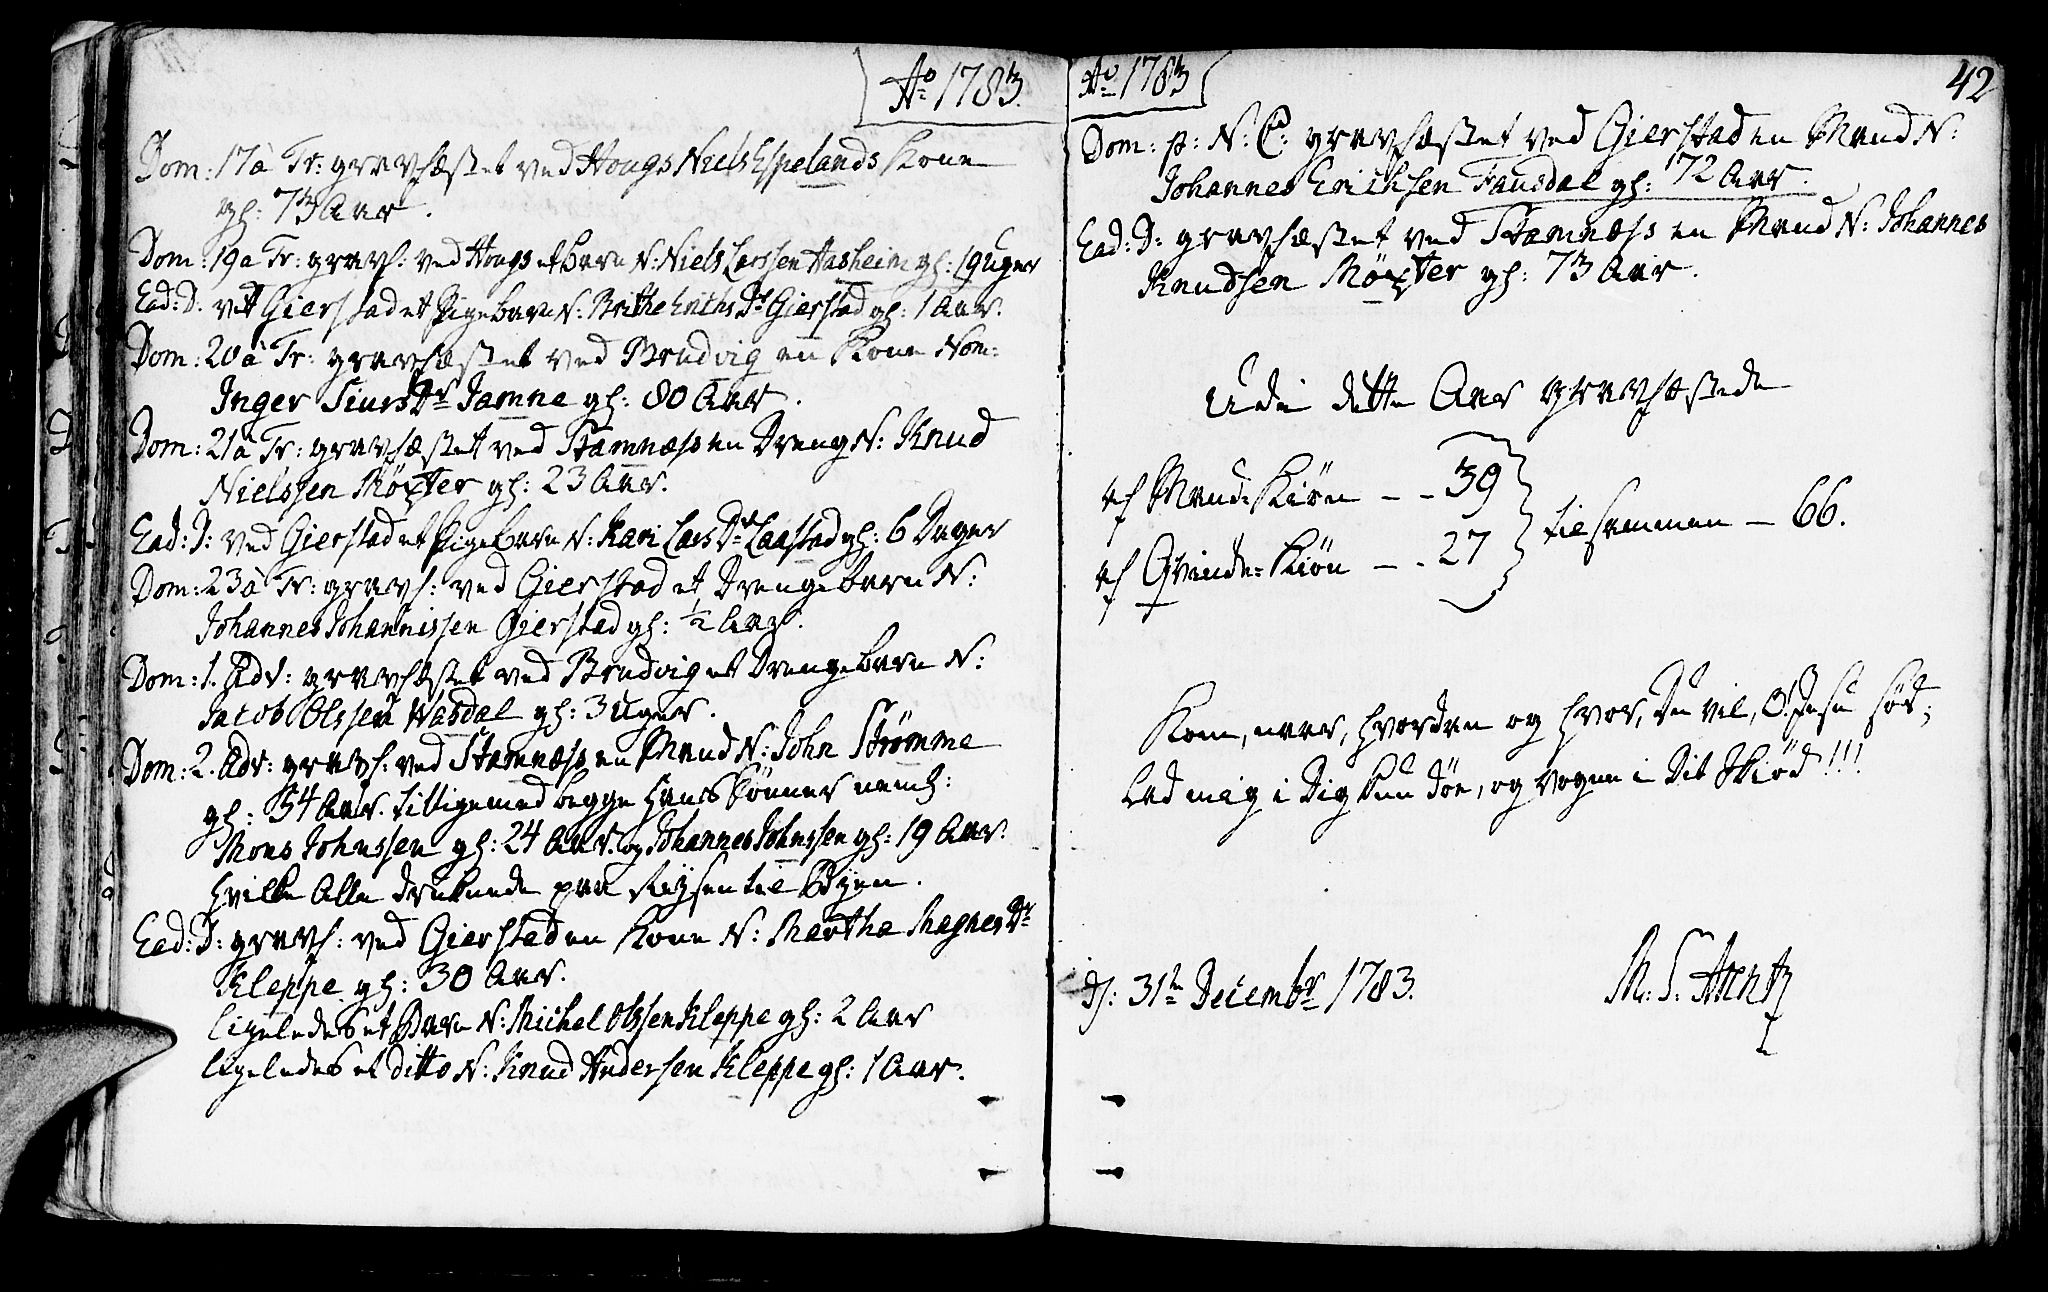 Ao 1783.
Dom: 17 à Tr: gravfæstet ved Hougs Niels Espelands Kone
gl: 73 Aar.
Dom: 19 a Tr: gravf: ved Hougs et Barn N: Niels Larssen Aasheim gl: 19 Uger
Ead: D. ved Gierstad et Pigebarn N: Brithe Erichs Dr Gierstad gl: 1 Aar.
Dom: 20 à Tr: gravfæstet ved Brudvig en Kone Nom:
Inger Siurs Dr Jamne gl: 80 Aar.
Dom: 21 à Tr: gravfæstet ved Stamnæss en Dreng N: Knud
Nielssen Möxter gl: 23 Aar.
Ead: D: ved Gierstad et Pigebarn N: Kari Lars Dr Laastad gl: 6 Dager
Dom: 23 à Tr: gravf: ved Gierstad et Drengebarn N:
Johannes Johannissen Gierstad gl: ½ Aar.
Dom: 1. Adv: gravfæstet ved Brudvig et Drengebarn N:
Jacob Olssen Wasdal gl: 3 Uger.
Dom: 2. Adv: gravf: ved Stamnæss en Mand N: John Strömme
gl: 54 Aar. tilligemed begge hans Sönner neml:
Mons Johnssen gl: 24 Aar. og Johannes Johnssen gl: 19 Aar.
hvilke Alle druknede paa Reysen til Byen.
Ead: D: gravf: ved Gierstad en Kone N: Martha Magnes Dr
Kleppe gl: 30 Aar.
ligeledes et Barn N: Michel Olssen Kleppe gl: 2 Aar
ligeledes et ditto N: Knud Andersen Kleppe gl: 1 Aar.
Ao 1783
42
Dom: p: N: C: gravfæstet ved Gierstad en Mand N:
Johannes Erichsen Fausdal gl: 72 Aar.
Ead: D: gravfæstet ved Stamnæss en Mand N: Johannes
Knudsen Möxter gl: 73 Aar.
Udi dette Aar gravfæstede
af Mand-Kiön - - 39
af Qvinde-Kiön - - 27
tilsammen - 66.
Kom, naar, hvordan og hvor, Du vil, O! Jesu söd;
Lad mig i Dig kun döe, og vogne i Dit Skiöd!!!
d: 31te Decembr 1783.
M: S: Arentz